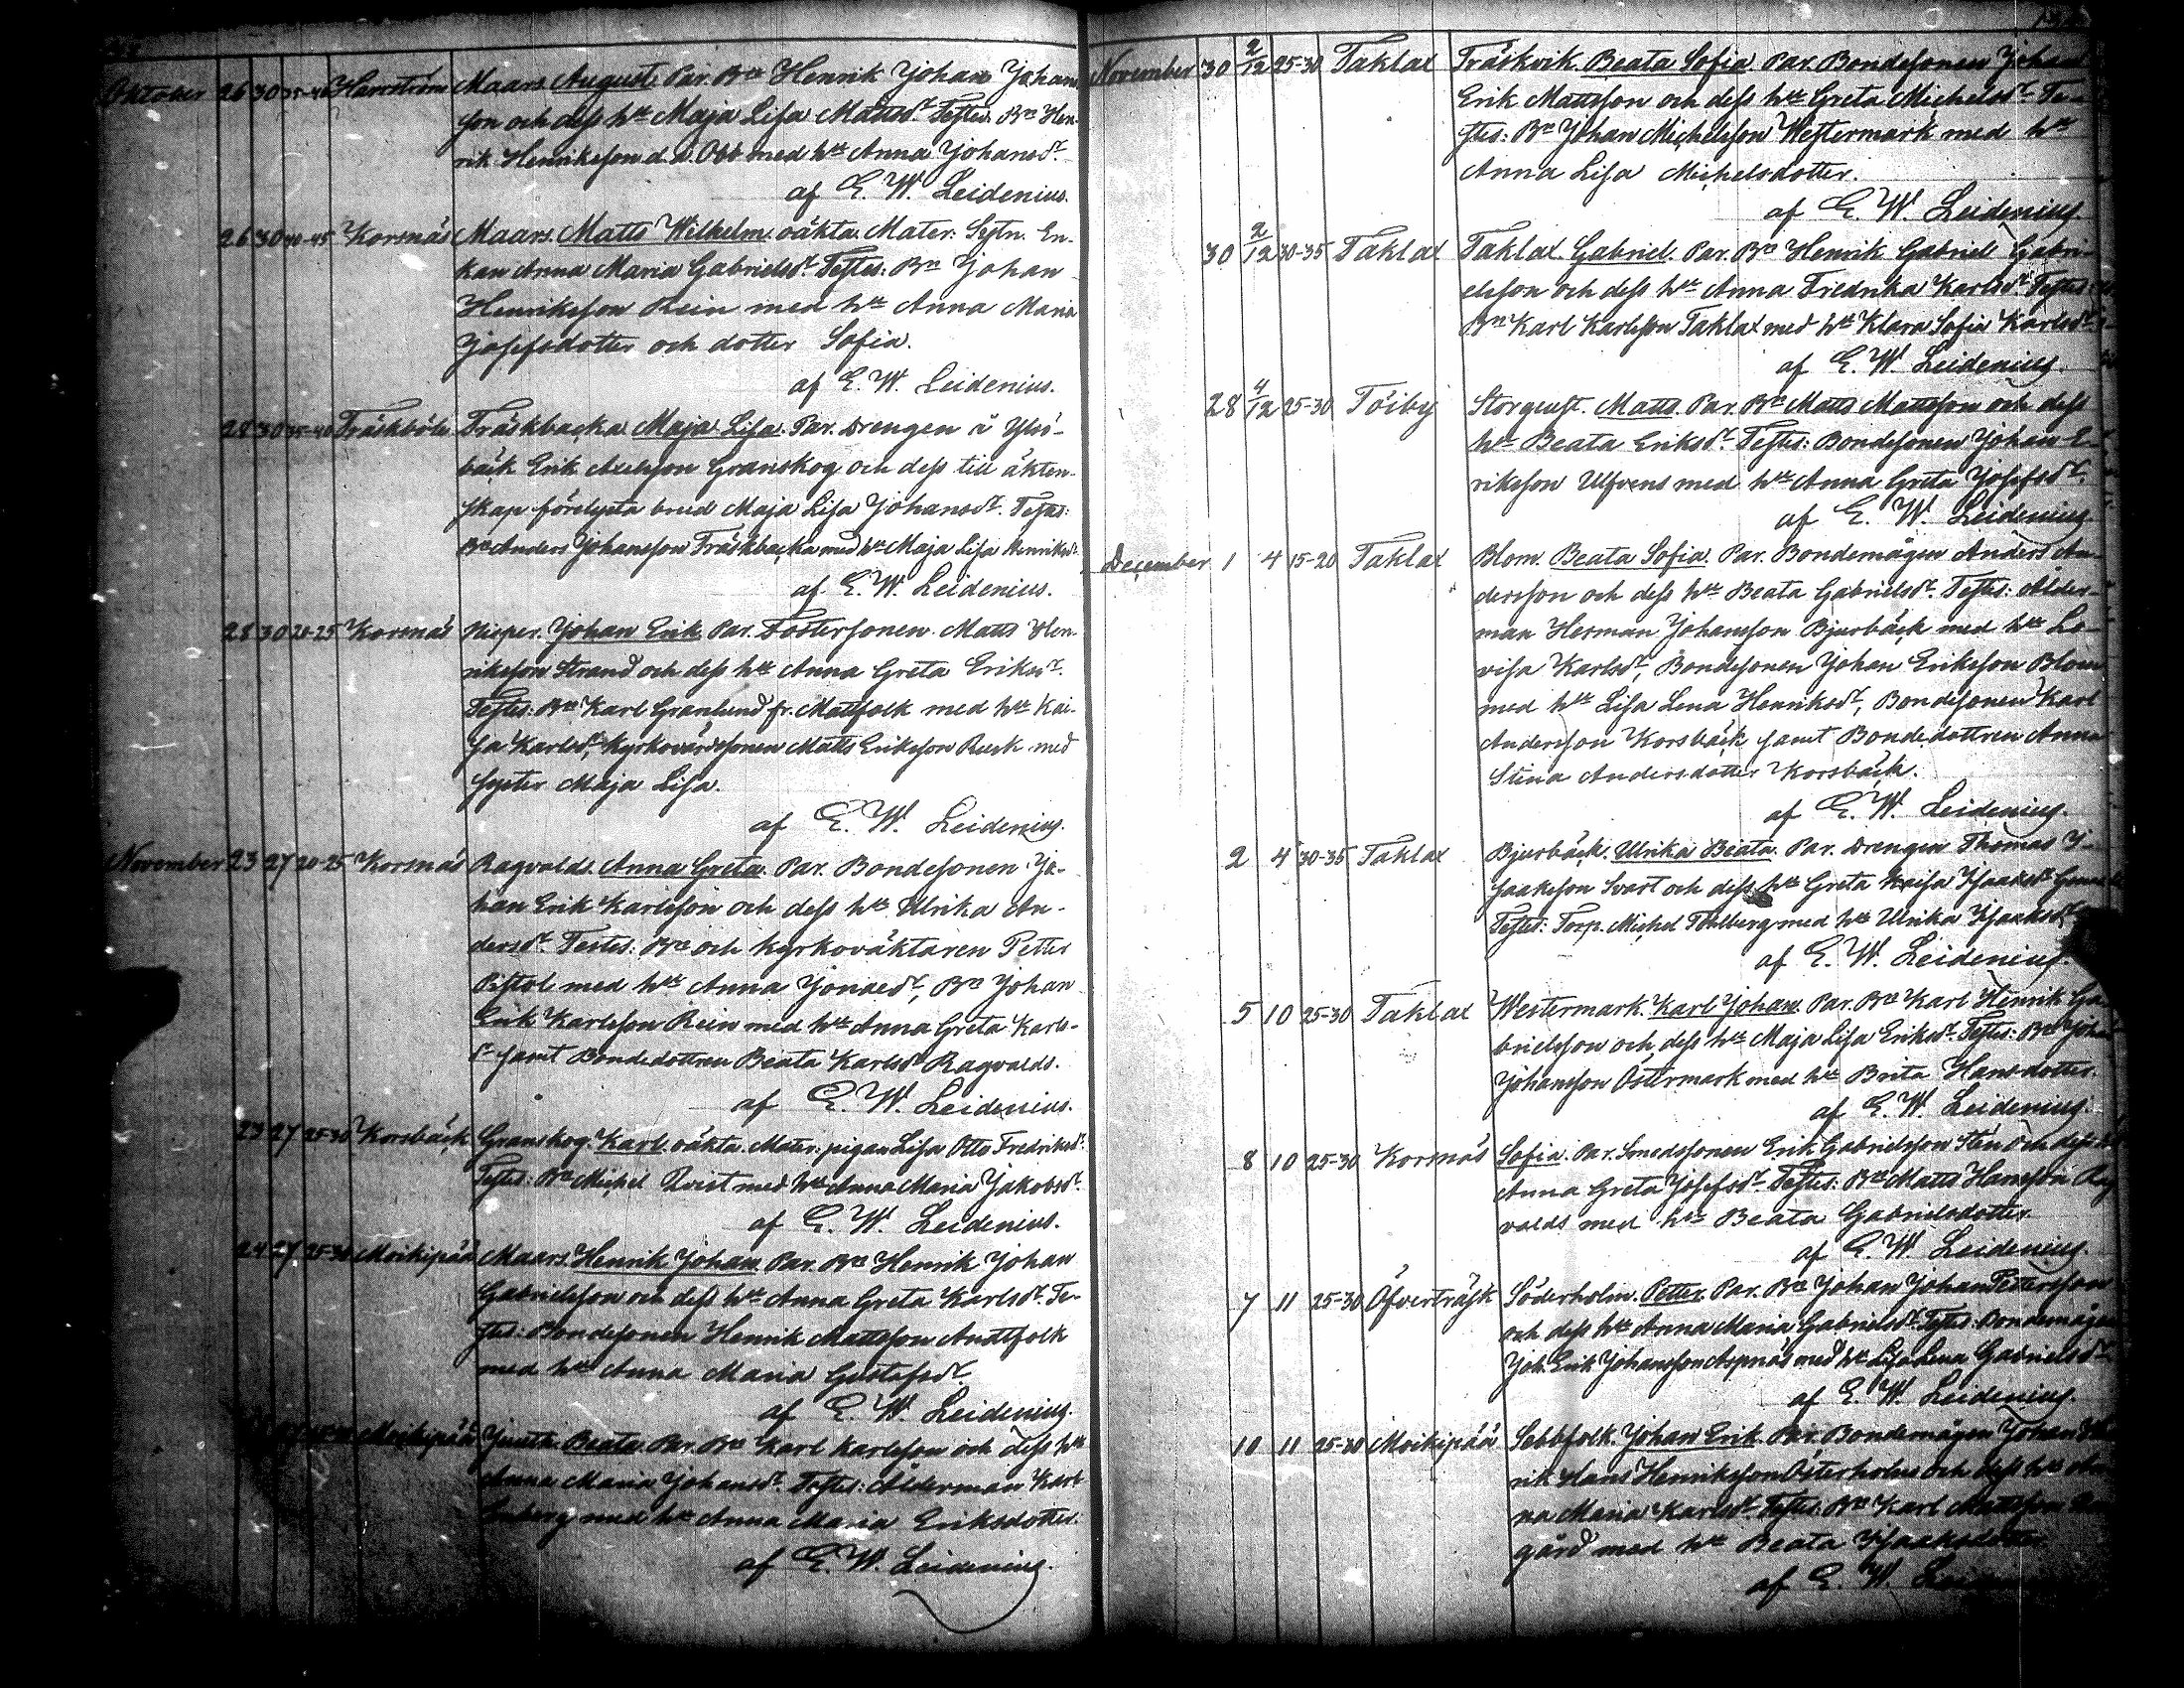 Oktober 26 30 35-40 Harrström Maars. August. Par. Bn Henrik Johan Johans-
son och dess hu Maja Lisa Mattsdr. Testes. Bn Hen-
rik Henriksson d. ä. Obb med hu Anna Johansdr.
af E. W. Leidenius.
26 30 40-45 Korsnäs Maars. Matts Wilhelm. oäkta. Mater: Sytn. En-
kan Anna Maria Gabrielsdr. Testes: Bn Johan
Henriksson Rein med hu Anna Maria
Josefsdotter och dotter Sofia.
af E. W. Leidenius.
28 30 35-40 Träskböle Träskbacka. Maja Lisa. Par. Drengen å
bäck Erik Granskog och dess till äkten-
skap förelysta brud Maja Lisa Johansdr. Testes:
Bn Anders Johansson Träskbacka med hu Maja Lisa Henriksdr.
af E. W. Leidenius.
28 30 20-25 Korsnäs Johan Erik. Par. Fostersonen Matts Hen-
riksson Strand och dess hu Anna Greta Eriksdr.
Testes: Bn Karl Granlund fr. Mattfolk med hu Kai-
sa Karlsdr, Kyrkovärdssonen Matts Eriksson med
syster Maja Lisa.
af E. W. Leidenius.
November 23 27 20-25 Korsnäs Ragvalds. Anna Greta. Par. Bondesonen Jo-
han Erik Karlsson och dess hu Ulrika An-
dersdr. Testes: Bn och kyrkoväktaren Petter
Pistol med hu Anna Jonaedr, Bn Johan
Erik Karlsson Rein med hu Anna Greta Karls-
dr samt Bondedottren Beata Karlsdr Ragvalds.
af E. W. Leidenius.
23 27 25-30 Korsbäck Granskog. Karl. oäkta. Mater: pigan Lisa Otto Fredriksdr.
Testes: Bn Michel Qvist med hu Anna Maria Jakobsdr.
af E. W. Leidenius.
24 27 25-30 Moikipää Maars. Henrik Johan. Par. Bn Henrik Johan
Gabrielsson och dess hu Anna Greta Karlsdr. Te-
stes: Bondesonen Henrik Mattsson Andtfolk
med hu Anna Maria Gustafsdr.
af E. W. Leidenius.
Moikipää Beata. Par. Bn Karl Karlsson och dess hu
Anna Maria Johansdr. Testes: Ålderman Karl
med hu Anna Maria Eriksdotter.
af E. W. Leidenius.
November 30 2/12 25-30 Taklax Träskvik. Beata Sofia. Par. Bondesonen Johan
Erik Mattsson och dess hu Greta Michelsdr. Te-
stes: Bn Johan Michelsson Westermark med hu
Anna Lisa Michelsdotter.
af E. W. Leidenius.
30 2/12 30-35 Taklax Taklax. Gabriel. Par. Bn Henrik Gabriel Gabri-
elsson och dess hu Anna Fredrika Karlsdr. Testes:
Bn Karl Karlsson Taklax med hu Klara Sofia Karlsdr.
af E. W. Leidenius.
28 4/12 25-30 Töiby Storgust. Matts. Par. Bn Matts Mattsson och dess
hu Beata Eriksdr. Testes: Bondesonen Johan E-
riksson Ulfvens med hu Anna Greta Josefsdr.
af E. W. Leidenius.
December 1 4 15-20 Taklax Blom. Beata Sofia. Par. Bondemågen Anders An-
dersson och dess hu Beata Gabrielsdr. Testes: Ålder-
man Herman Johansson Bjurbäck med hu Lo-
visa Karlsdr, Bondesonen Johan Eriksson Blom
med hu Lisa Lena Henriksdr, Bondesonen Karl
Andersson Korsbäck samt Bondedottren Anna
Stina Andersdotter Korsbäck.
af E. W. Leidenius.
2 4 30-35 Taklax Bjurbäck. Ulrika Beata. Par. Drengen Thomas I-
saaksson Svart och dess hu Greta Kaisa Isaaksdr
Testes: Torp. Michel Tohlberg med hu Ulrika Isaaksdr.
af E. W. Leidenius.
5 10 25-30 Taklax Westermark. Karl Johan. Par. Bn Karl Henrik Ga-
brielsson och dess hu Maja Lisa Eriksdr. Testes: Bn Johan
Johansson Östermark med hu Brita Hansdotter.
af E. W. Leidenius.
8 10 25-30 Korsnäs Sofia. Par. Smedssonen Erik Gabrielsson Sten och dess
Anna Greta Josefsdr. Testes: Bn Matts Hansson Rag-
valds med hu Beata Gabrielsdotter.
af E. W. Leidenius.
7 11 25-30 Öfverträsk Söderholm. Petter. Par. Bn Johan Johan Pettersson
och dess hu Anna Maria Gabrielsdr. Testes: Bondemågen
Joh. Erik Johansson Aspnäs med hu Lisa Lena Gabrielsdr.
af E. W. Leidenius.
10 11 25-30 Moikipää Sebbfolk. Johan Erik. Par. Bondemågen Johan
rik Hans Henriksson Österholm och dess hu An-
na Maria Karlsdr. Testes: Bn Karl Mattsson
gård med hu Beata Isaaksdotter
af E. W.